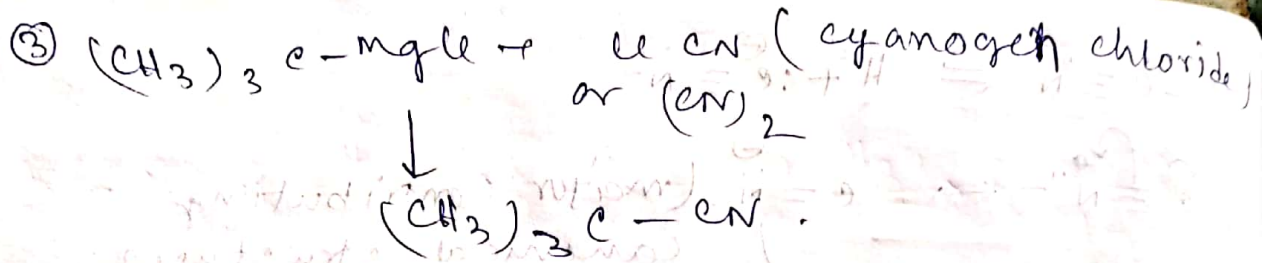 ③ (CH3)3 C-MgCl + Cl CN (cyanogen chloride)
or (CN)2
↓
(CH3)3 C - CN.